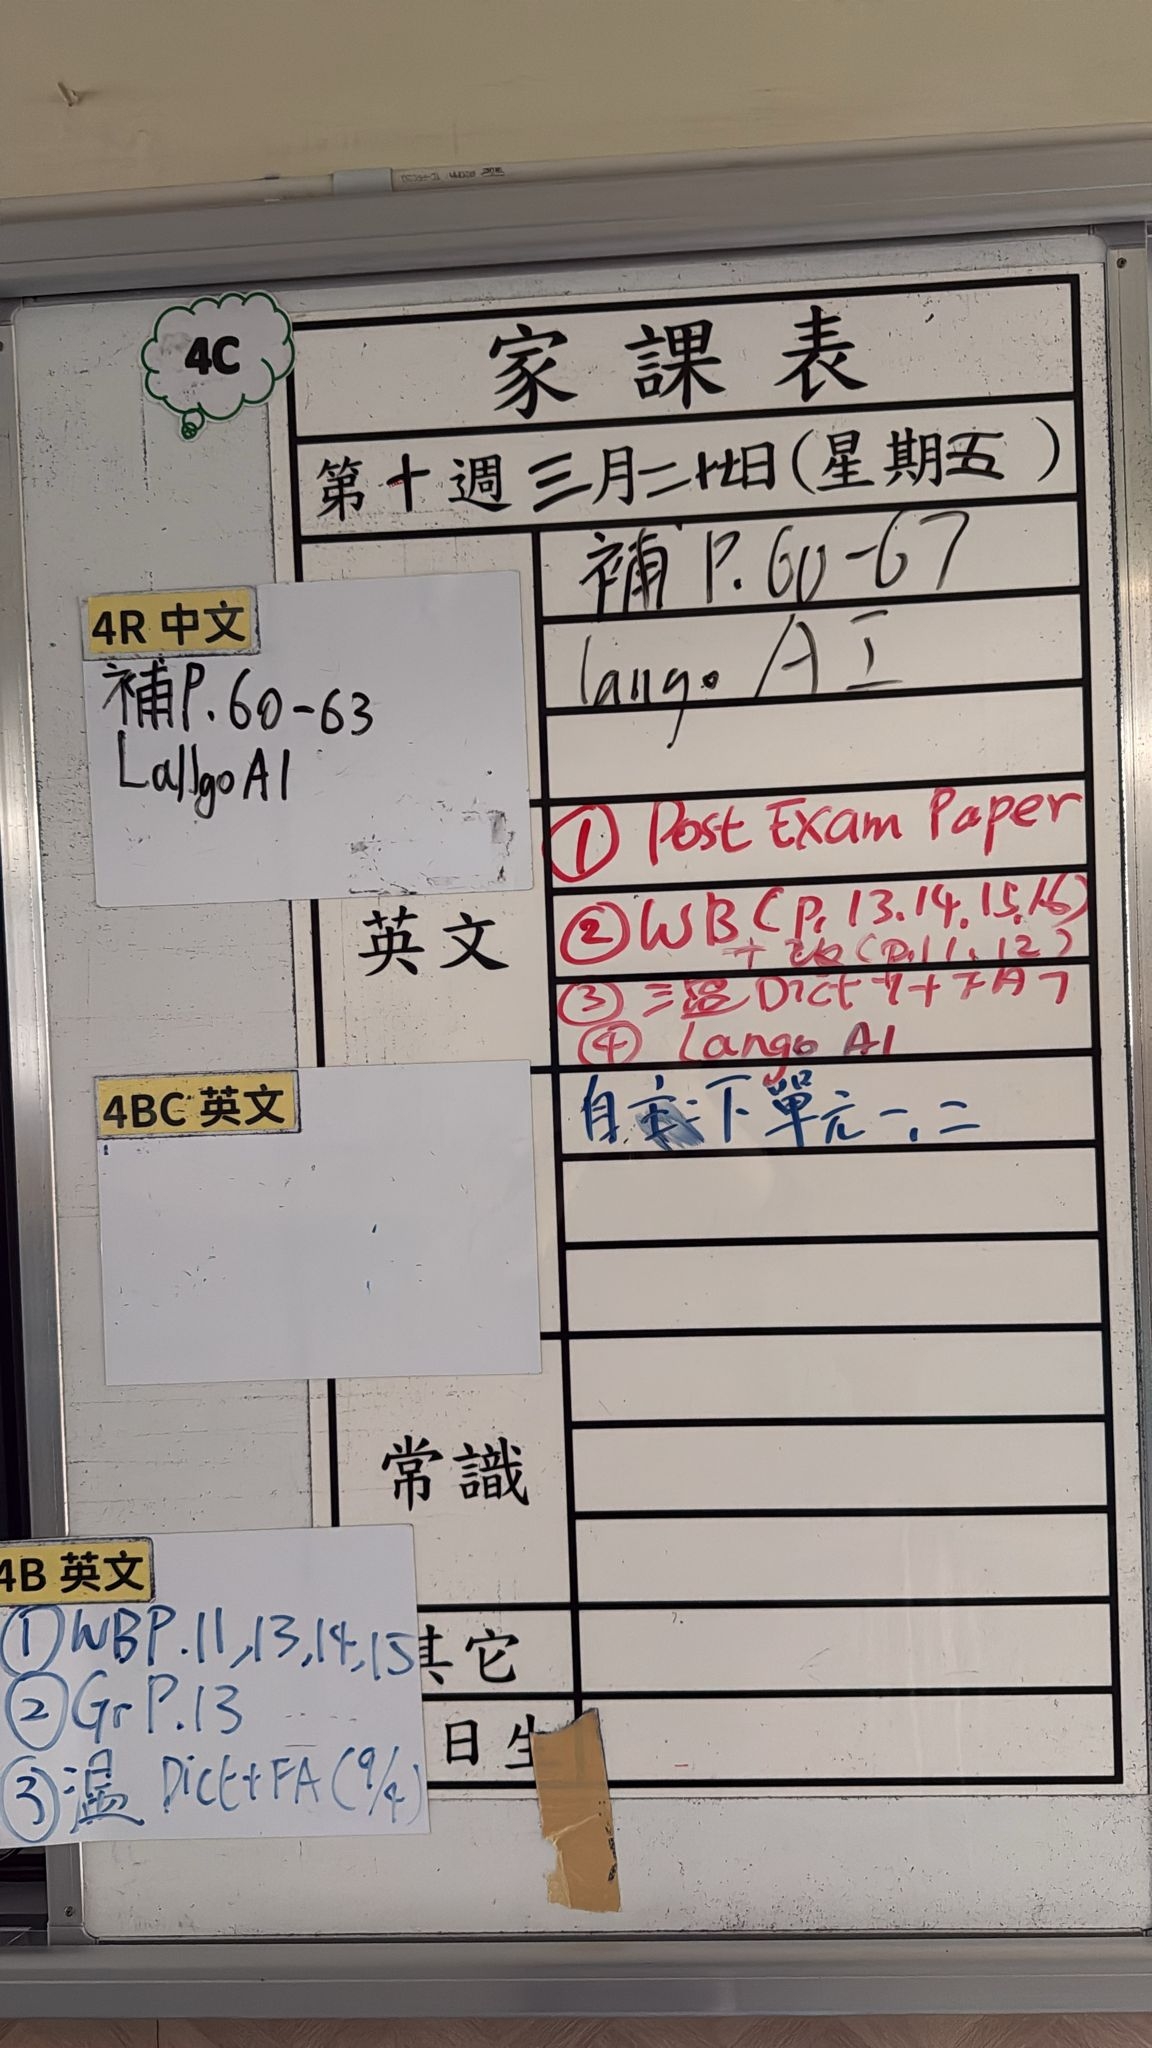 4C
家課表
第十週三月二十七日(星期五)
補P.60-67
Lango AI
4R 中文
補P.60-63
LangoAI
英文
① Post Exam Paper
② WB (p.13.14.15.16)
+ (p.11.12)
③ 溫 Dict
④ Lango AI
4BC 英文
自主:下單元一.二
常識
4B 英文
① WBP.11,13,14,15
② GrP.13
③ 溫 Dict+FA(9/4)
其它
日生